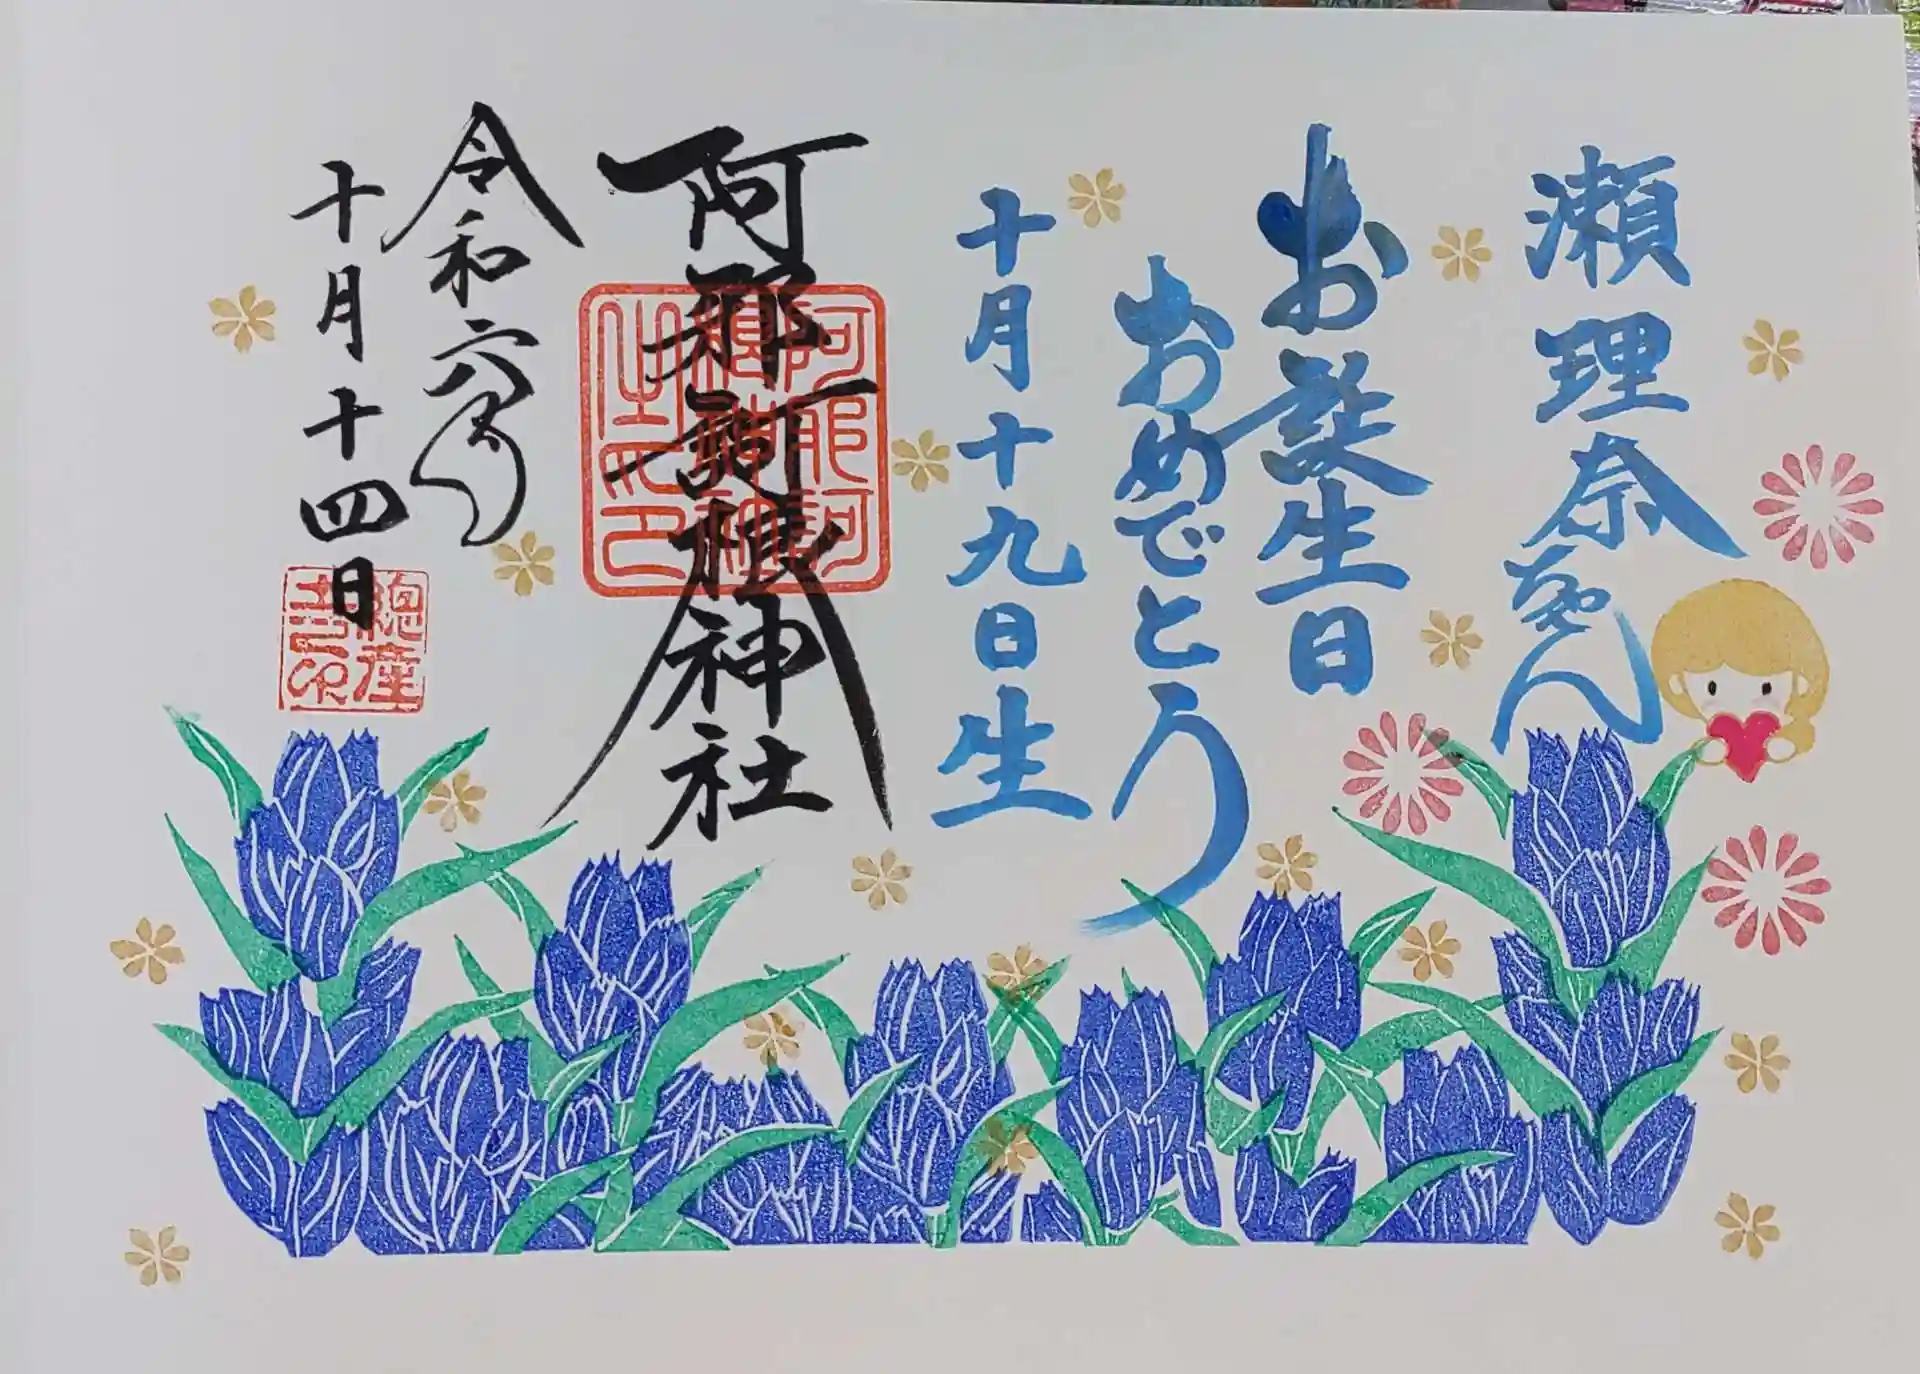 瀬理奈ちゃん
お誕生日
おめでとう
十月十九日生
阿邪訶根神社
阿邪訶根神社之印
令和六年
十月十四日